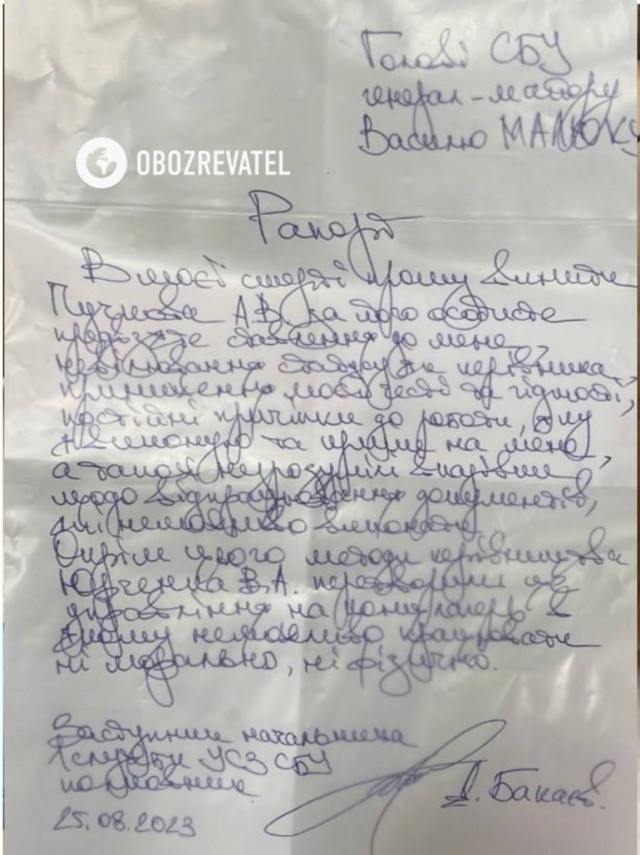 Голові СБУ
генерал-майору
Василю МАЛЮКУ
OBOZREVATEL
Рапорт
В моєї смерті прошу винити
А.В. за його особисте
ставлення до мене,
керівника,
приниження моєї честі та гідності,
постійні причіпки до роботи, яку
виконую та крики на мене,
а також незрозумілі вказівки
щодо відпрацювання документів,
які неможливо виконати.
Окрім цього методи керівництва
Юрченка В.А. перетворили це
управління на концтабір в
якому неможливо працювати
ні морально, ні фізично.
Заступник начальника
служби УСЗ СБУ
полковник
25.08.2023
Д. Бакаєв.